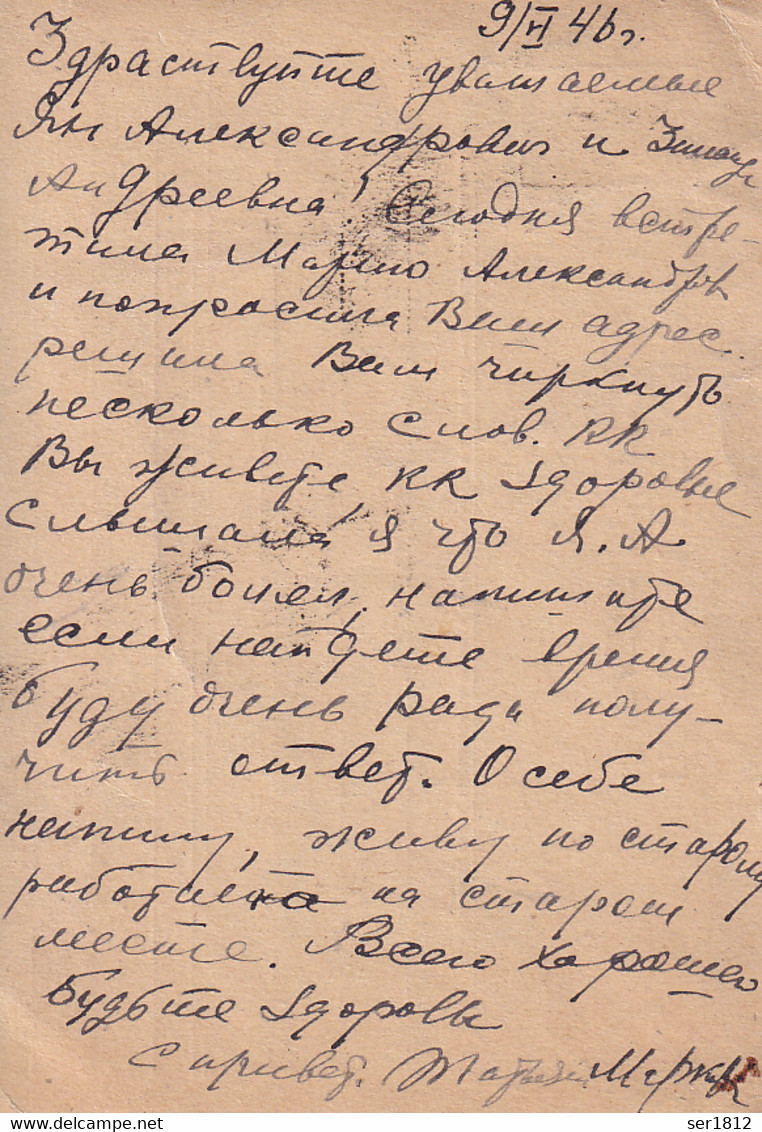 9/VI 46 г.
Здраствуйте уважаемые
Ян Александрович и Зинаида
Андреевна! Сегодня встре-
тила Марию Александров
и попросила Ваш адрес.
решила Вам чиркнуть
несколько слов. кк
Вы живете, кк здоровье
слышала я что Я.А
очень болел, напишите
если найдете время
буду очень рада полу-
чить ответ. О себе
напишу, живу по старому
работаю на старом
месте. Всего хорошего
Будьте здоровы
С привет.
ser1812